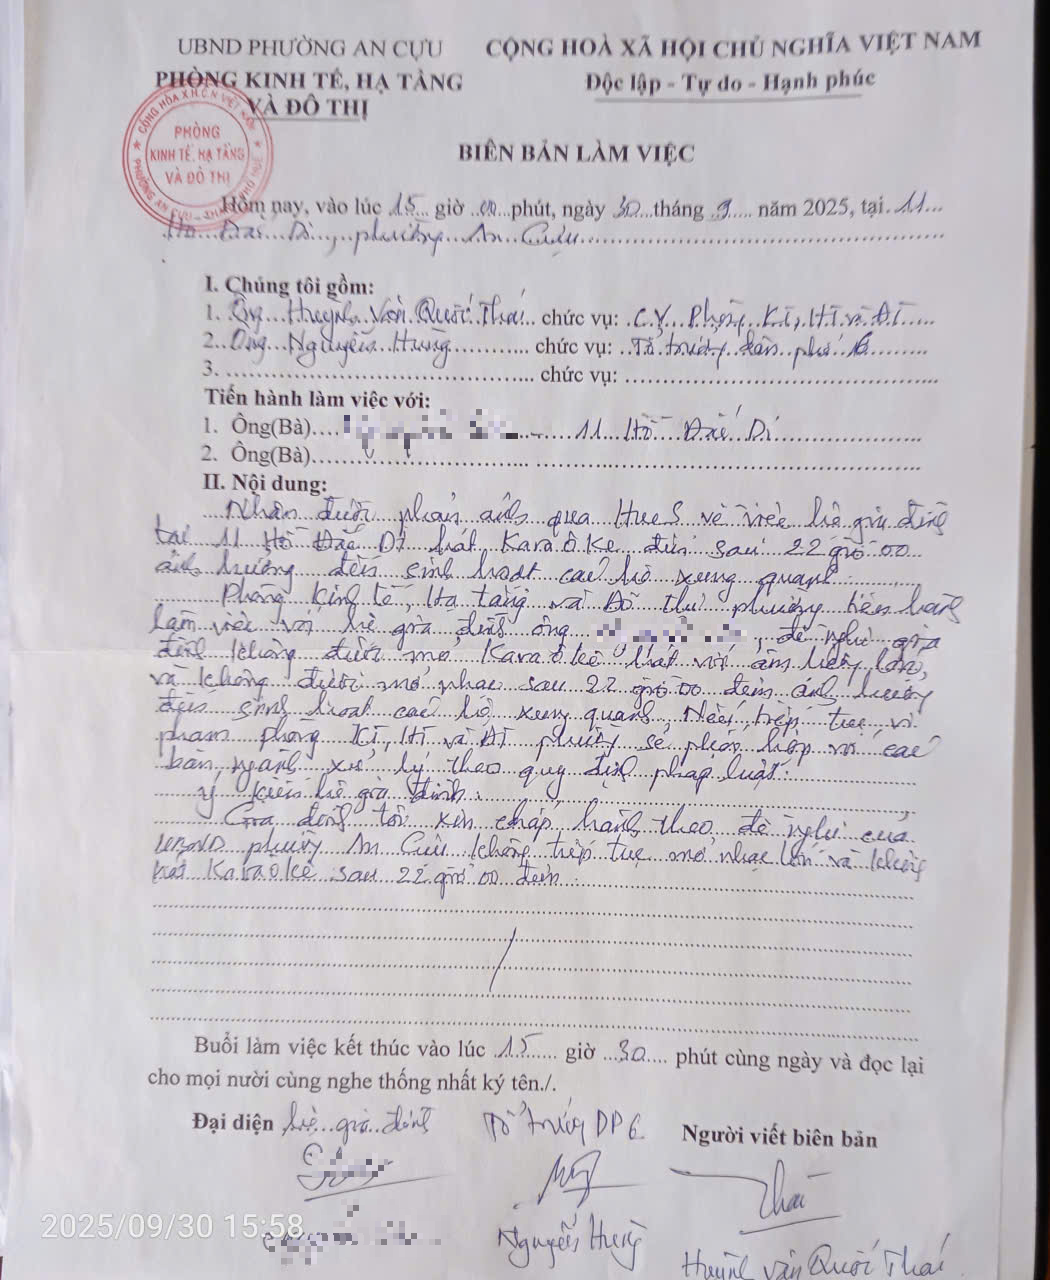 UBND PHƯỜNG AN CỰU
PHÒNG KINH TẾ, HẠ TẦNG
VÀ ĐÔ THỊ
CỘNG HOÀ XÃ HỘI CHỦ NGHĨA VIỆT NAM
Độc lập - Tự do - Hạnh phúc
CỘNG HÒA X.H.C.N VIỆT NAM
PHÒNG
KINH TẾ, HẠ TẦNG
VÀ ĐÔ THỊ
PHƯỜNG AN CỰU - THÀNH PHỐ HUẾ
BIÊN BẢN LÀM VIỆC
Hôm nay, vào lúc 15 giờ 00 phút, ngày 30 tháng 9 năm 2025, tại 11
Hồ Đắc Di, phường An Cựu
I. Chúng tôi gồm:
1. Ông Huỳnh Văn Quốc Thái chức vụ: C.V Phòng KT, HT và ĐT
2. Ông Nguyễn Hưng chức vụ: Tổ trưởng dân phố 6
3. chức vụ:
Tiến hành làm việc với:
1. Ông(Bà) 11 Hồ Đắc Di
2. Ông(Bà)
II. Nội dung:
Nhận được phản ánh qua HueS về việc hộ gia đình
tại 11 Hồ Đắc Di hát Karaôkê đến sau 22 giờ 00
ảnh hưởng đến sinh hoạt các hộ xung quanh.
Phòng Kinh tế, Hạ tầng và Đô thị phường tiến hành
làm việc với hộ gia đình ông , đề nghị gia
đình không được mở Karaôkê hát với âm lượng lớn,
và không được mở nhạc sau 22 giờ 00 đêm ảnh hưởng
đến sinh hoạt các hộ xung quanh. Nếu tiếp tục vi
phạm phòng KT, HT và ĐT phường sẽ phối hợp với các
ban, ngành xử lý theo quy định pháp luật.
Ý kiến hộ gia đình:
Gia đình tôi xin chấp hành theo đề nghị của
UBND phường An Cựu không tiếp tục mở nhạc lớn và không
hát Karaôkê sau 22 giờ 00 đêm.
Buổi làm việc kết thúc vào lúc 15 giờ 30 phút cùng ngày và đọc lại
cho mọi nười cùng nghe thống nhất ký tên./.
Đại diện hộ gia đình
Tổ trưởng DP 6
Người viết biên bản
Thái
2025/09/30 15:58
Nguyễn Hưng
Huỳnh Văn Quốc Thái